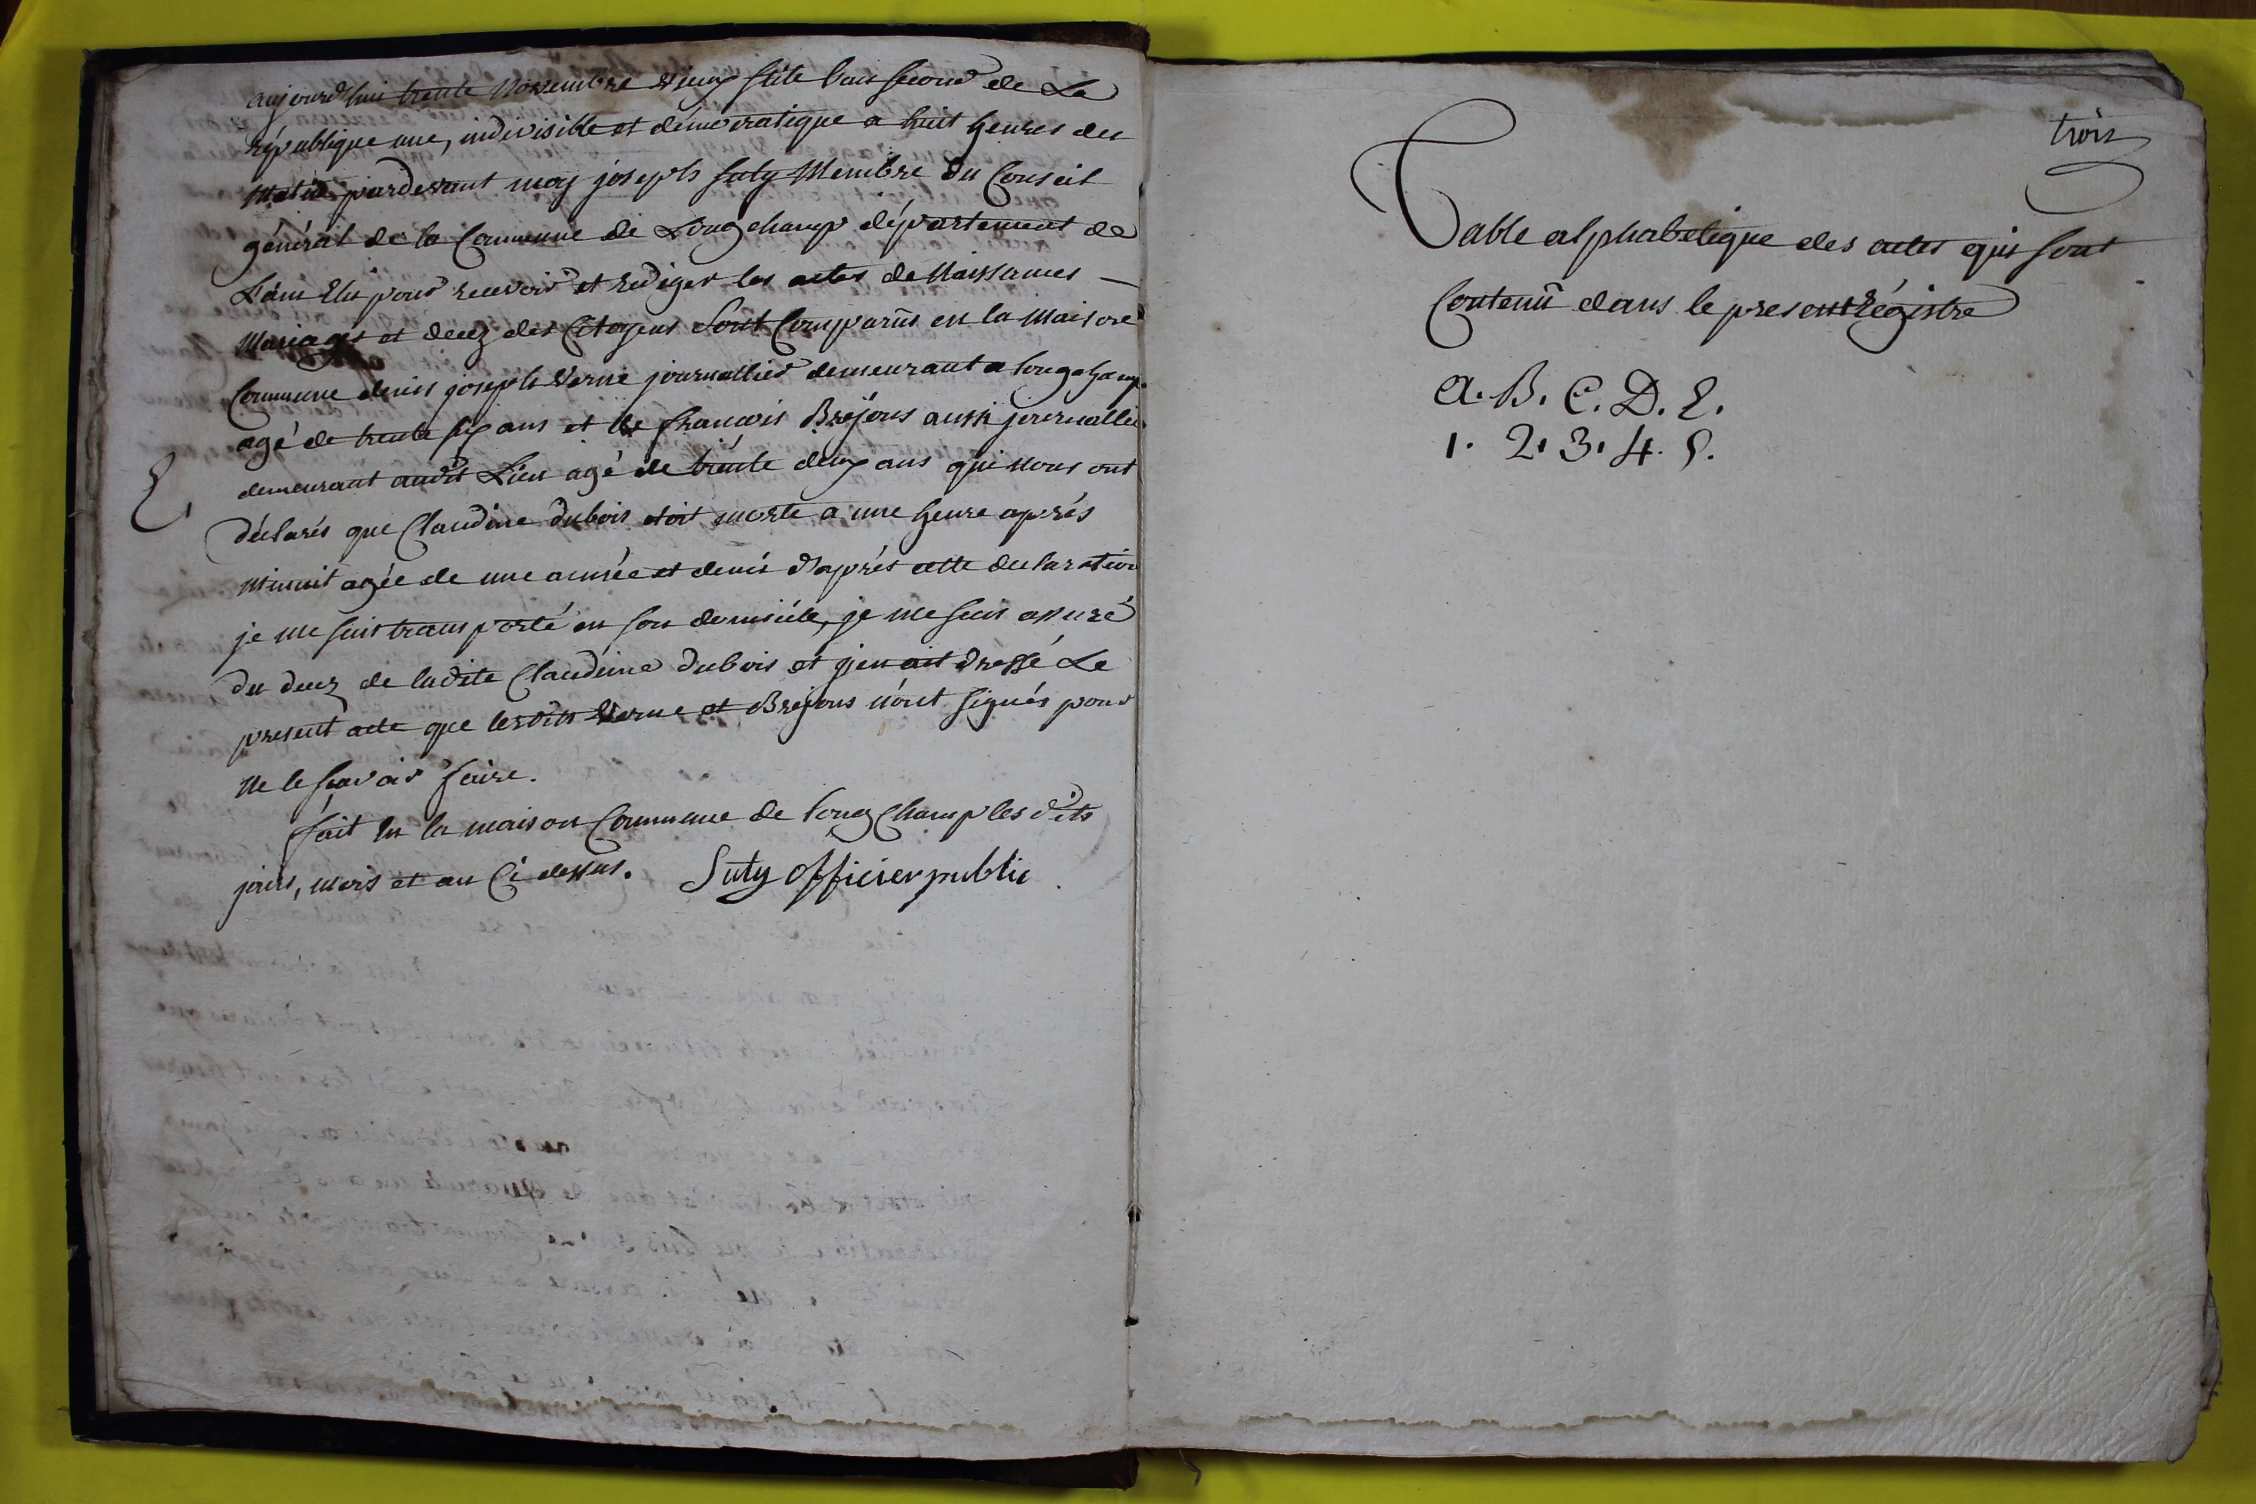 aujourd'hui trente Novembre vieux stile l'an second de La
république une, indivisible et démocratique a huit heures du
matin pardevant moy joseph Suty Membre du Conseil
général de la Commune de Longchamp département de
L'ain Elu pour recevoir et rediger les actes de Naissances
Mariages et decez des Citoyens Sont Comparûs en la Maison
Commune denis joseph Verne journallier demeurant a longchamp
agé de trente six ans et françois Bréjons aussi journallier
demeurant audit Lieu agé de trente deux ans qui nous ont
E
déclarés que Claudine dubois étoit morte a une heure aprés
minuit agée de une année et demis d'aprés cette declaration
je me suis transporté en son domicile, je me suis assuré
du decez de ladite Claudine dubois et j'en ait dressé Le
present acte que lesdits Verne et Bréjons n'ont signés pour
Ne le scavoir faire.
fait En la maison Commune de longChamp les dits
jours, mois et an Ci dessus. Suty officier public
trois
Table alphabetique des actes qui sont
Contenû dans le present Régistre
a. B. C. D. E.
1. 2. 3. 4. 5.